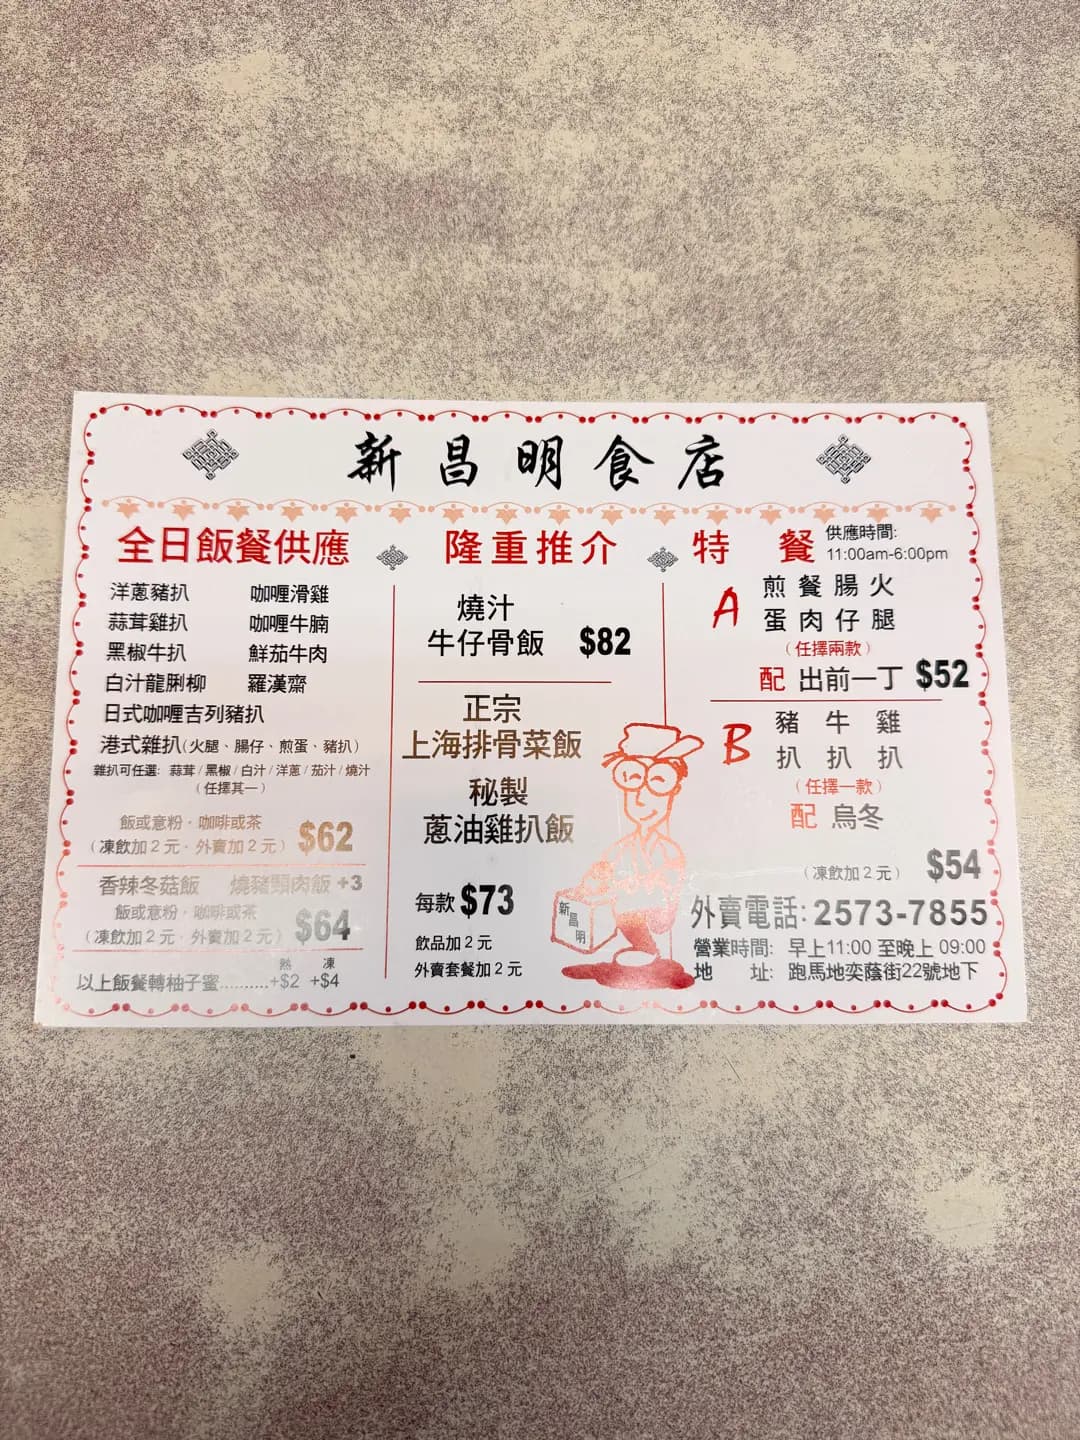 新昌明食店
全日飯餐供應
洋蔥豬扒 咖喱滑雞
蒜茸雞扒 咖喱牛腩
黑椒牛扒 鮮茄牛肉
白汁龍脷柳 羅漢齋
日式咖喱吉列豬扒
港式雜扒(火腿、腸仔、煎蛋、豬扒)
雜扒可任選: 蒜茸/黑椒/白汁/洋蔥/茄汁/燒汁
(任擇其一)
飯或意粉・咖啡或茶
(凍飲加2元・外賣加2元) $62
香辣冬菇飯 燒豬頸肉飯+3
飯或意粉・咖啡或茶
(凍飲加2元・外賣加2元) $64
熱 凍
以上飯餐轉柚子蜜..........+$2 +$4
隆重推介
燒汁
牛仔骨飯 $82
正宗
上海排骨菜飯
秘製
蔥油雞扒飯
每款$73
飲品加2元
外賣套餐加2元
新昌明
特餐 供應時間:
11:00am-6:00pm
A 煎 餐 腸 火
蛋 肉 仔 腿
(任擇兩款)
配 出前一丁 $52
B 豬 牛 雞
扒 扒 扒
(任擇一款)
配 烏冬
(凍飲加2元) $54
外賣電話:2573-7855
營業時間: 早上11:00 至晚上 09:00
地 址: 跑馬地奕蔭街22號地下